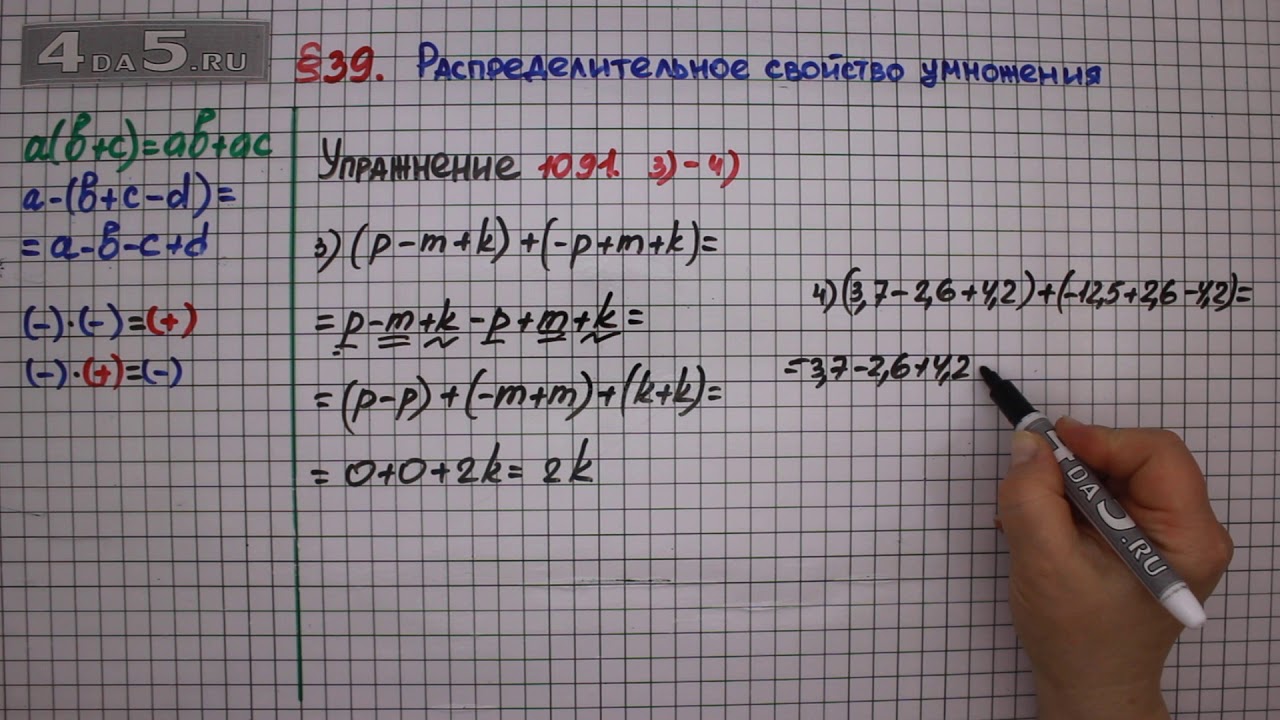 4DA5.RU
§39. Распределительное свойство умножения
a(b+c)=ab+ac
a-(b+c-d)=
=a-b-c+d
(-)·(-)=(+)
(-)·(+)=(-)
Упражнение 1091. 3)-4)
3)(p-m+k)+(-p+m+k)=
=p-m+k-p+m+k=
=(p-p)+(-m+m)+(k+k)=
=0+0+2k=2k
4)(3,7-2,6+4,2)+(-12,5+2,6-4,2)=
=3,7-2,6+4,2
4DA5.RU